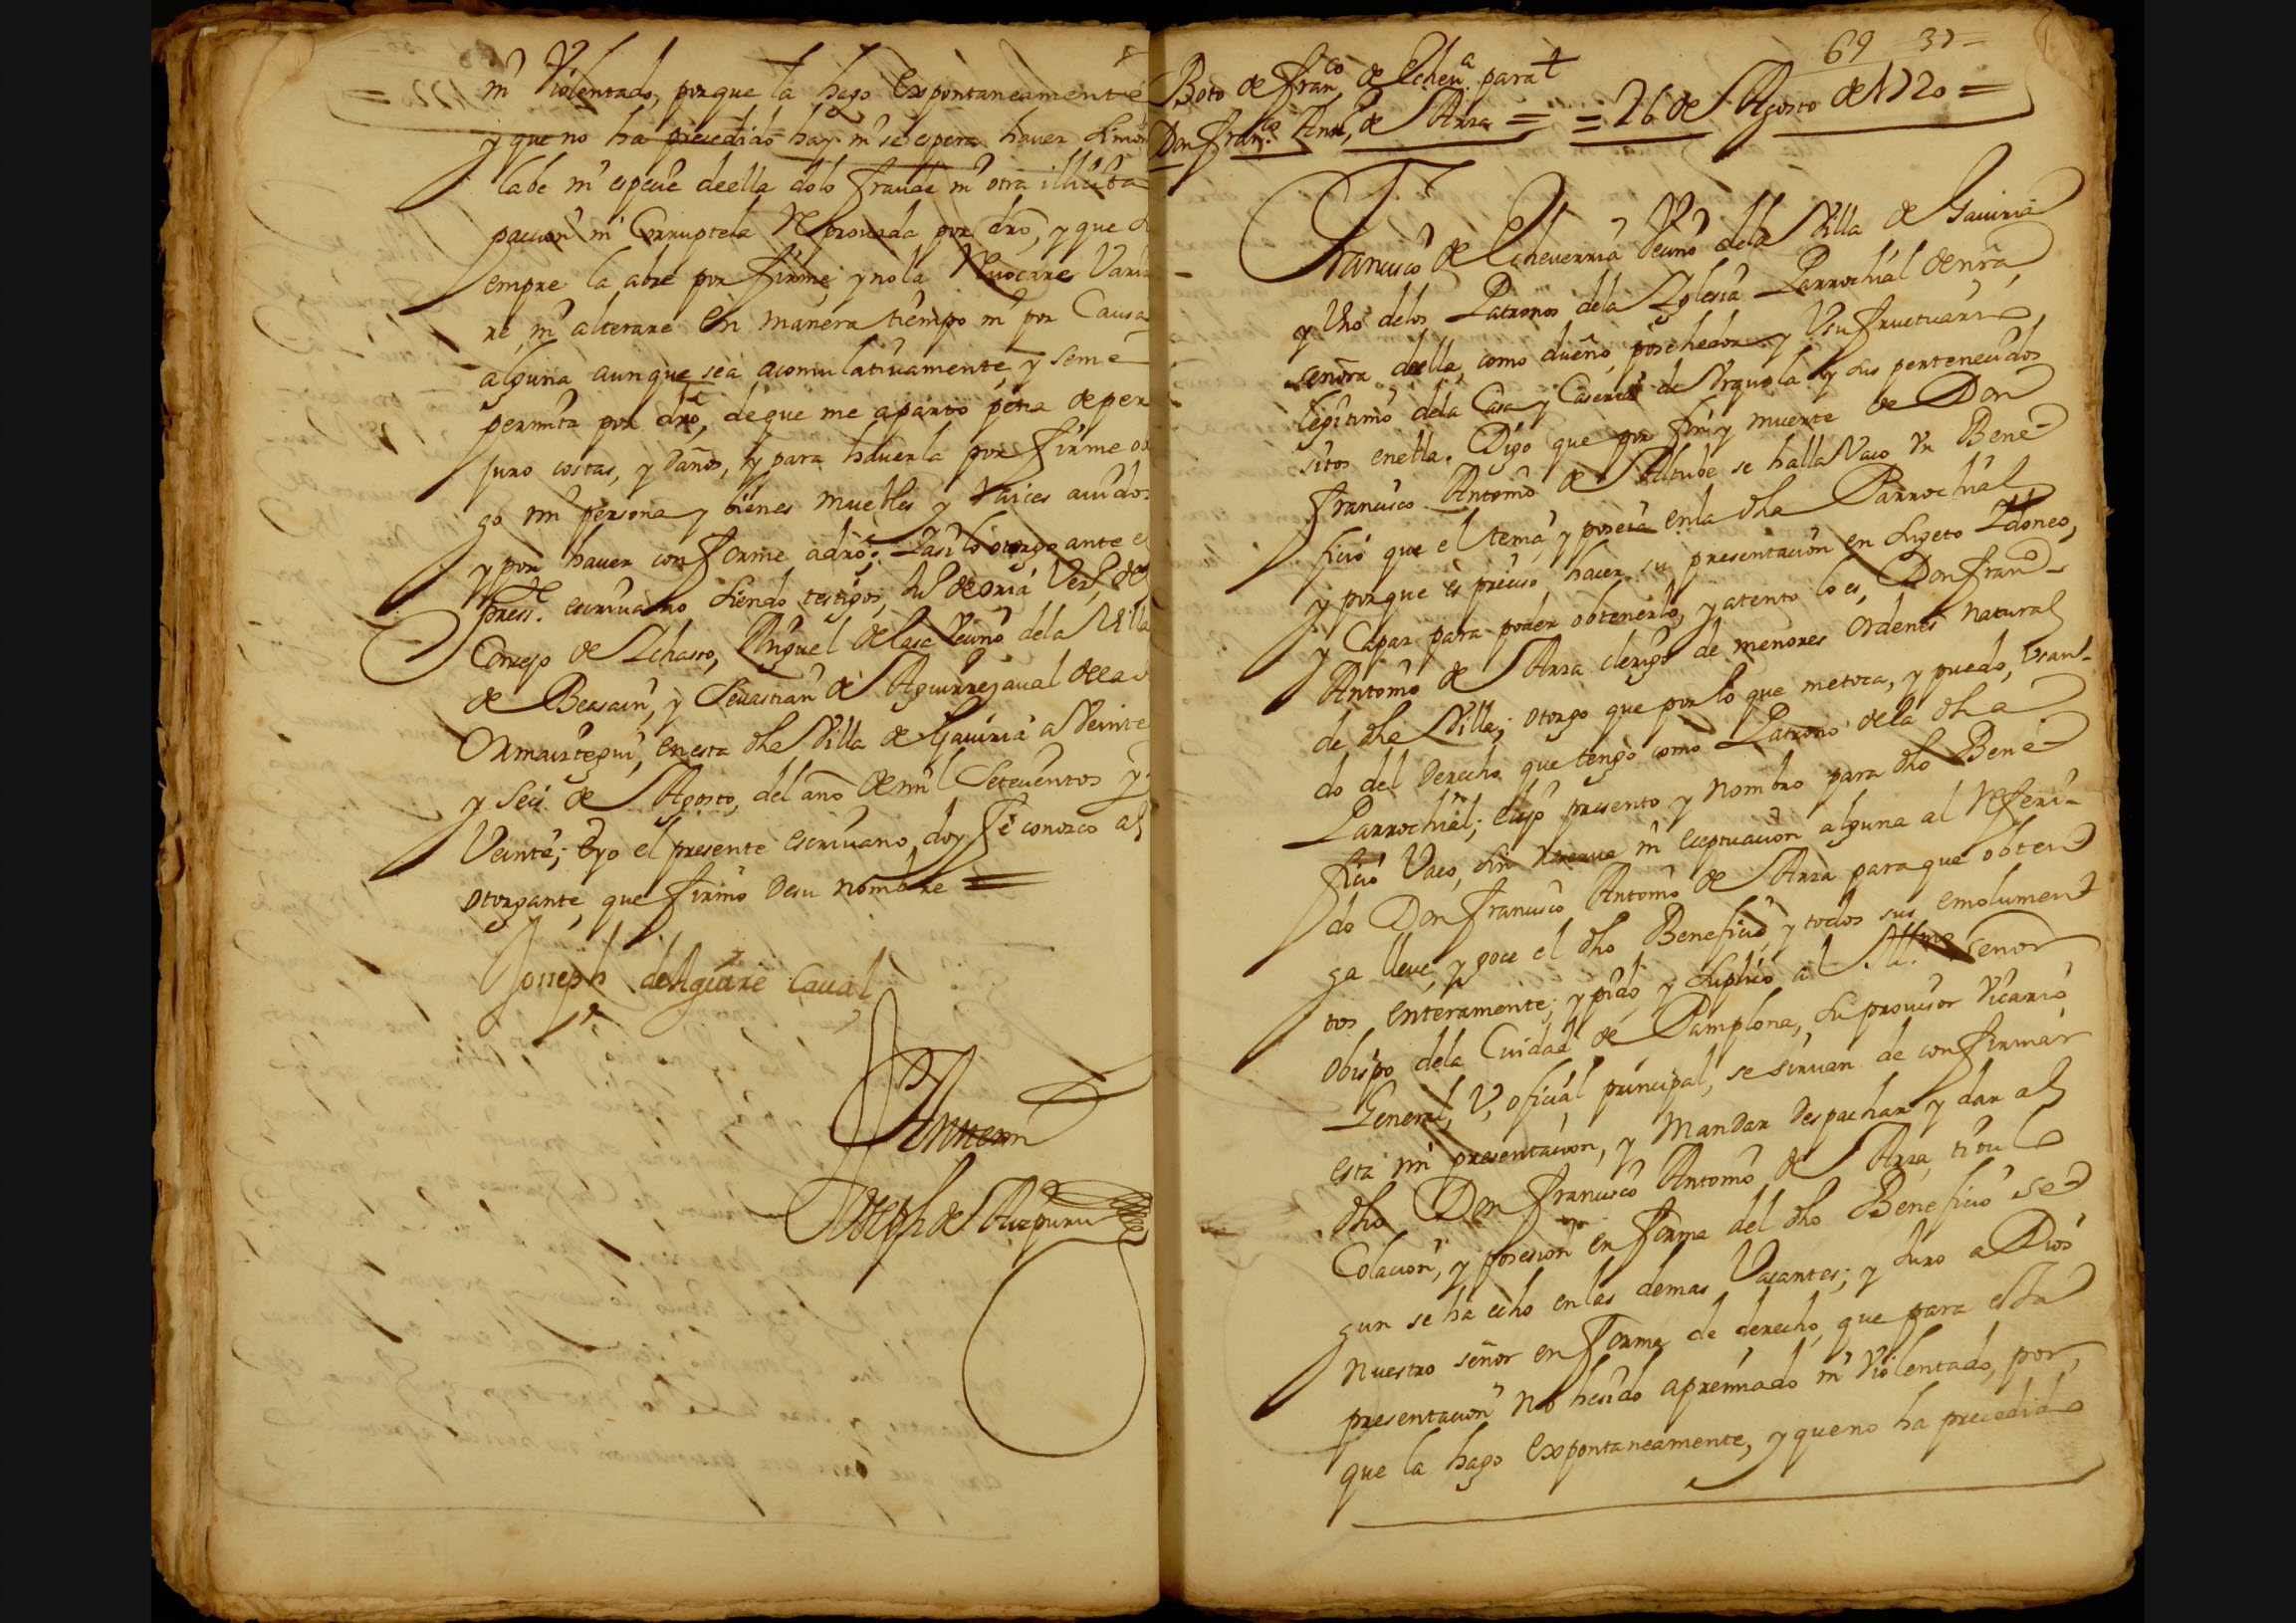 ni Violentado, porque la hago Expontaneamente
y que no ha precedido hay ni se espera haver simon
labe ni especie de ella dolo fraude ni otra illicita
paccion ni Corruptela Reprouada por dro, y que
sempre la abre por firme y no la Reuocare Varia
re, ni alterare En manera tiempo ni por Causa
alguna aunque sea acomulatiuamente, y se me
permita por dro, de que me aparto pena de per
juro costas, y daños, y para hauerla por firme ob
go mi persona y bienes muebles y Raices auidos
y por hauer conforme a dro: Y asi lo otorgo ante el
press.te escriuano siendo testigos de oria
Concejo de Ichasso, Miguel de Lasa Vecino de la Villa
de Beasain, y Sevastian de Aguirrezaual de la
Ormaiztegui, en esta dha Villa de Gauiria a Veinte
y Seis de Agosto, del año de mil Setecientos y
Veinte; E yo el presente escriuano doy fe conozco al
otorgante que firmo de su nombre =
Joseph de Aguirre Çaual
Ante mi
Joseph de Aizpuru
69 37
Boto de Fran.co de Echeu.a para
Don Fran.co Ant.o de Arza = = 26 de Agosto de 1720 =
Francisco de Echeuerria Vecino de la Villa de Gauiria
y Uno de los Patronos de la Yglesia Parrochial de nra
señora de ella, como dueño, posehedor y Usufructuario
legitimo de la Casa y Caseria de Urquiola y sus pertenecidos
sitos en ella. Digo que por fin y muerte de Don
Francisco Antonio de Altube se halla Vaco Un Bene
ficio que el tenia y poseia en la dha Parrochial
y porque es preciso hacer su presentacion en sugeto Idoneo,
y Capaz para poder obtenerlo, y atento lo es, Don Fran.co
Antonio de Arza clerigo de menores Ordenes natural
de dha Villa; otorgo que por lo que me toca, y puedo, Usan
do del Derecho que tengo como Patrono de la dha
Parrochial; elijo presento y Nombro para dho Bene
ficio Vaco, sin reserua ni eceptuacion alguna al Referi
do Don Francisco Antonio de Arza para que obten
ga lleve, y goce el dho Beneficio, y todos sus emolumen
tos enteramente; y pido y suplico al Ill.mo señor
Obispo de la Ciudad de Pamplona, su prouisor Vicario
General, U, oficial principal, se siruan de confirmar
esta mi presentacion, y Mandar Despachar y dar al
dho Don Francisco Antonio de Arza, titulo
Colacion, y posesion en forma del dho Beneficio se
gun se ha echo en las demas Vacantes; y Juro a Dios
Nuestro señor en forma de derecho, que para esta
presentacion No he sido apremiado ni Violentado, por
que la hago Expontaneamente, y que no ha precedido